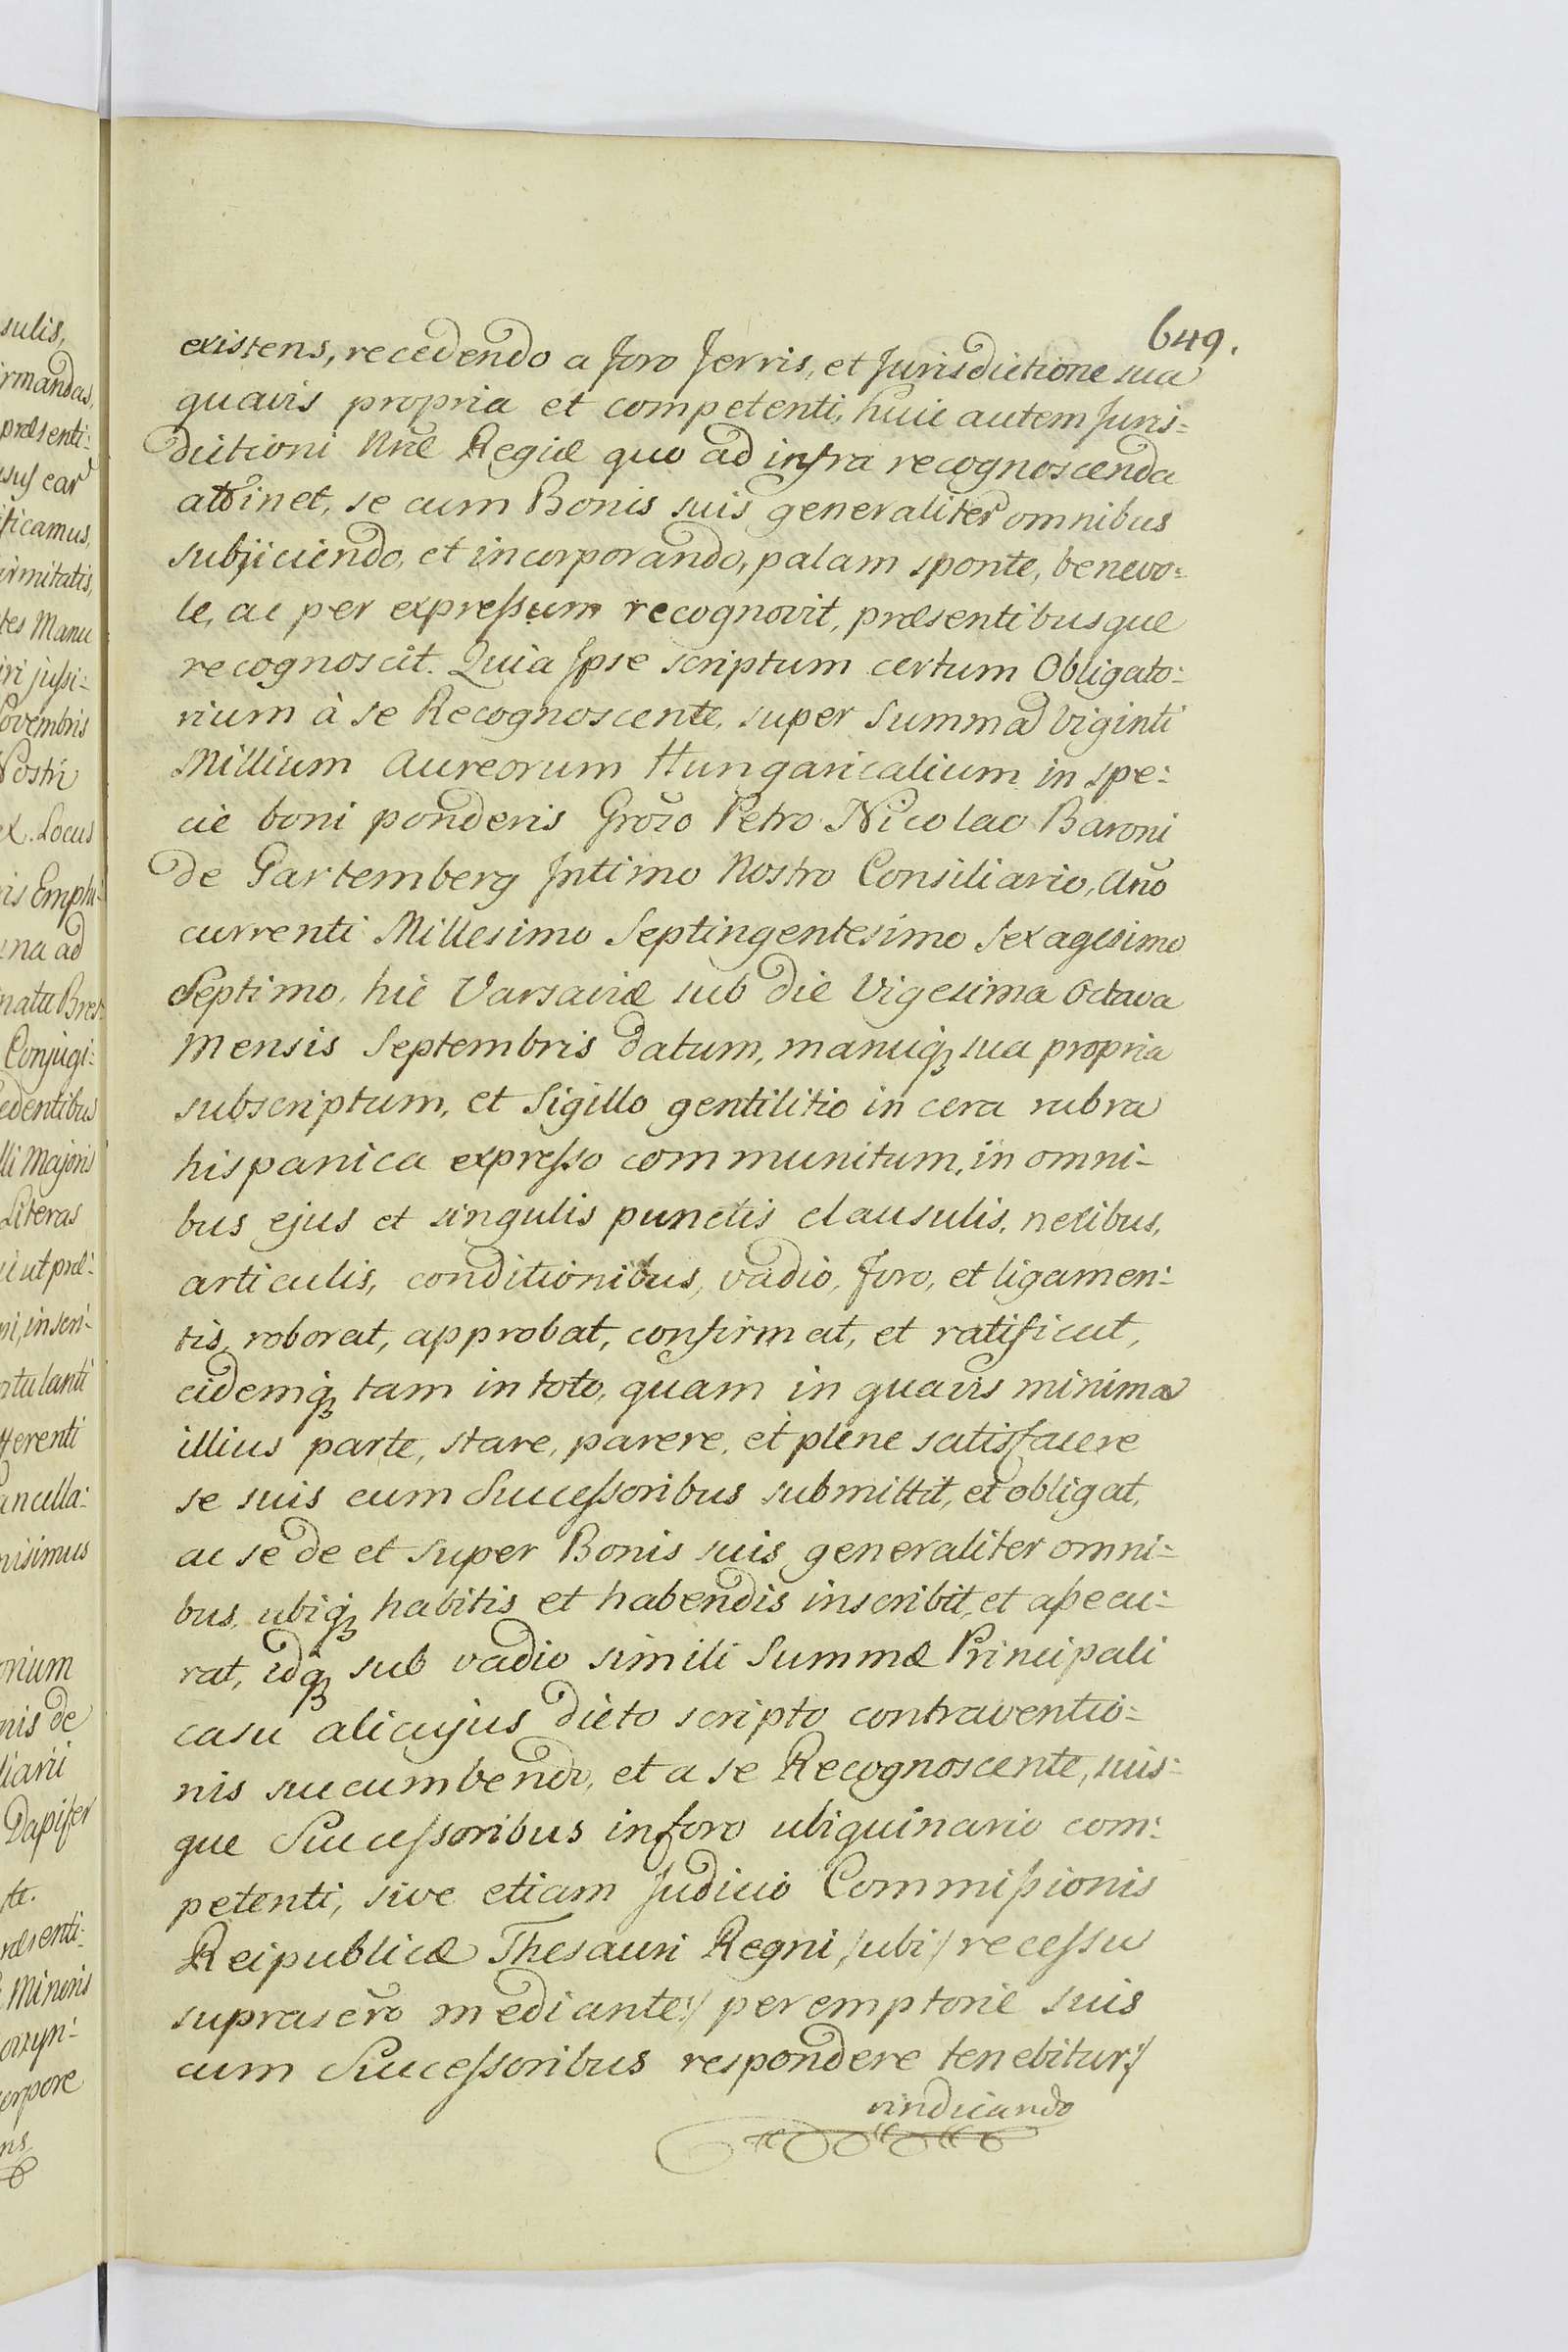 sulis,
irmandas,
præsenti:
sus ear
ificamus,
irmitatis,
tes Manu
iri jussi-
ovembris
Nostri
ex. Locus
ris Emphi-
una ad
natu Bres-
Conjugi-
edentibus
lli Majoris
Literas
ut præ-
ni, inscri-
tulanti
fferenti
ancella:
nisimus
orium
nis de
liarii
Dapifer
te.
ræsenti-
Minoris
corpore
ns
649.
existens, recedendo a foro Terris, et Jurisdictione sua
quavis propria et competenti, huic autem Juris=
dictioni Nræ Regiæ quo ad infra recognoscenda
attinet, se cum Bonis suis generaliter omnibus
subjiciendo, et incorporando, palam sponte, benevo=
le, ac per expressum recognovit, præsentibusque
recognoscit. Quia Ipse scriptum certum Obligato:
rium à se Recognoscente, super Summa Viginti
Millium Aureorum Hungaricalium in spe:
cie boni ponderis Grōso Petro Nicolao Baroni
de Gartemberg Intimo Nostro Consiliario, Año
currenti Millesimo Septingentesimo Sexagesimo
Septimo, hic Varsaviæ sub die Vigesima Octava
Mensis Septembris datum, manuiq; sua propria
subscriptum, et Sigillo gentilitio in cera rubra
hispanica expresso communitum, in omni-
bus ejus et singulis punctis clausulis, nexibus,
articulis, conditionibus, vadio, foro, et ligamen:
tis, roborat, approbat, confirmat, et ratificat,
eidemq; tam in toto, quam in quavis minima
illius parte, stare, parere, et plene satisfacere
se suis cum Successoribus submittit, et obligat,
ac se de et super Bonis suis generaliter omni=
bus, ubiq; habitis et habendis inscribit, et assecu:
rat, idq; sub vadio simili Summæ Principali
casu alicujus dicto scripto contraventio=
nis sucumbendo, et a se Recognoscente, suis=
que Successoribus in foro ubiquinario com:
petenti, sive etiam Judicio Commissionis
Reipublicæ Thesauri Regni, /ubi/ recessu
suprascr̃o mediante/ peremptorie suis
cum Successoribus respondere tenebitur:/
vindicando